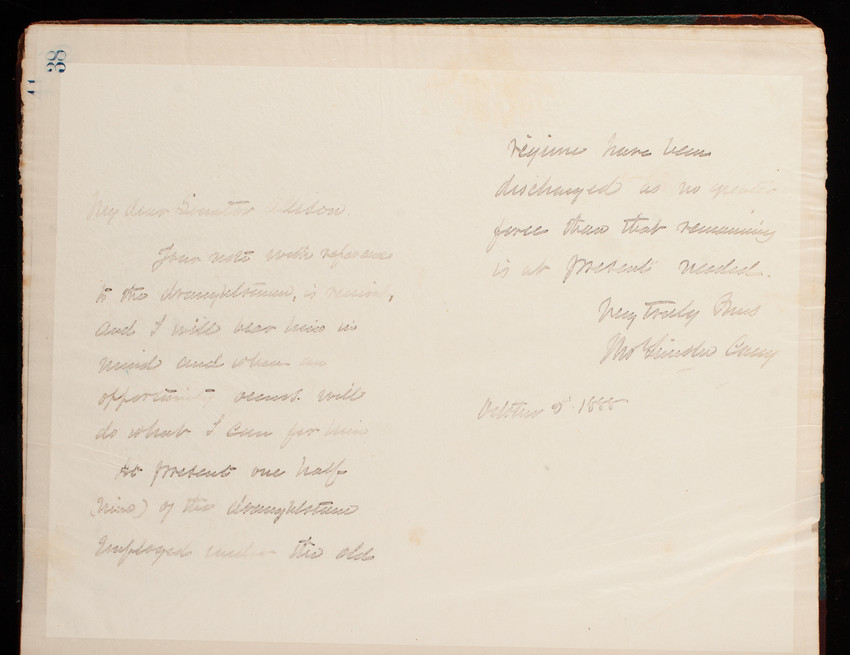 38
11
My dear Senator Allison.
Your note with reference
to the draughtsman, is received,
and I will bear him in
mind and when an
opportunity occurs. will
do what I can for him
At present one half
(nine) of the draughtsmen
employed under the old
régime have been
discharged as no greater
force than that remaining
is at present needed.
Very truly Yours
Thos Lincoln Casey
October 5 1888